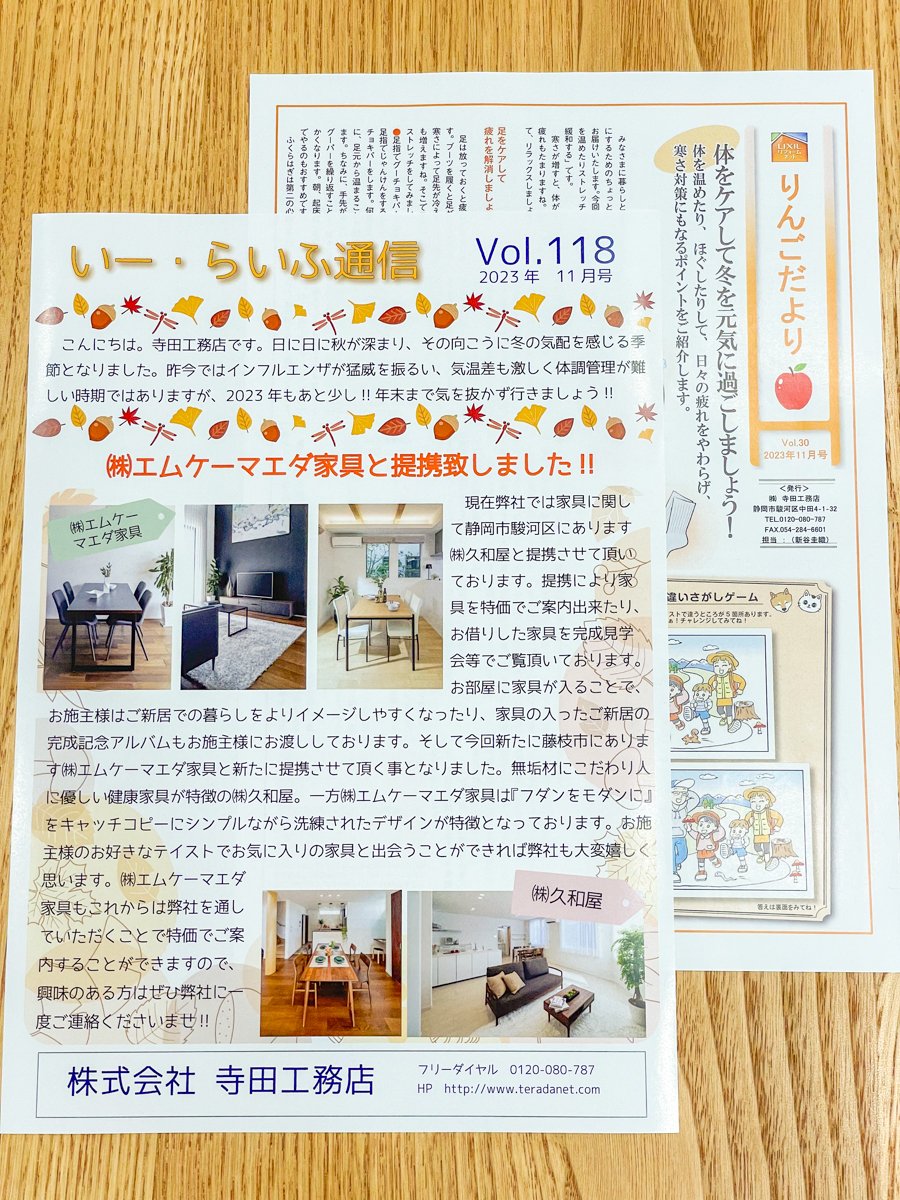 いー・らいふ通信
Vol.118
2023年 11月号
こんにちは。寺田工務店です。日に日に秋が深まり、その向こうに冬の気配を感じる季
節となりました。昨今ではインフルエンザが猛威を振るい、気温差も激しく体調管理が難
しい時期ではありますが、2023年もあと少し!!年末まで気を抜かず行きましょう!!
㈱エムケーマエダ家具と提携致しました!!
㈱エムケー
マエダ家具
現在弊社では家具に関し
て静岡市駿河区にあります
㈱久和屋と提携させて頂い
ております。提携により家
具を特価でご案内出来たり、
お借りした家具を完成見学
会等でご覧頂いております。
お部屋に家具が入ることで、
お施主様はご新居での暮らしをよりイメージしやすくなったり、家具の入ったご新居の
完成記念アルバムもお施主様にお渡ししております。そして今回新たに藤枝市にありま
す㈱エムケーマエダ家具と新たに提携させて頂く事となりました。無垢材にこだわり人
に優しい健康家具が特徴の㈱久和屋。一方㈱エムケーマエダ家具は『フダンをモダンに』
をキャッチコピーにシンプルながら洗練されたデザインが特徴となっております。お施
主様のお好きなテイストでお気に入りの家具と出会うことができれば弊社も大変嬉しく
思います。㈱エムケーマエダ
家具もこれからは弊社を通し
ていただくことで特価でご案
内することができますので、
興味のある方はぜひ弊社に一
度ご連絡くださいませ!!
㈱久和屋
株式会社 寺田工務店
フリーダイヤル 0120-080-787
HP http://www.teradanet.com
LIXIL
リフォーム
ネット
りんごだより
Vol.30
2023年11月号
＜発行＞
㈱ 寺田工務店
静岡市駿河区中田4-1-32
TEL.0120-080-787
FAX.054-284-6601
担当 : （新谷圭織）
体をケアして冬を元気に過ごしましょう！
体を温めたり、ほぐしたりして、日々の疲れをやわらげ、
寒さ対策にもなるポイントをご紹介します。
みなさまに暮らしと
にするためのちょっと
お届けいたします。今回
を温めたりストレッチ
緩和する」です。
寒さが増すと、体が
疲れもたまりますね。
て、リラックスしましょ
足をケアして
疲れを解消しましょ
足は放っておくと疲
す。ブーツを履くと足
寒さによって足先が冷え
も増えますね。そこで
ストレッチをしてみまし
●足指でグーチョキパ
足指でじゃんけんをする
チョキパーをします。何
に、足元から温まるこ
ます。ちなみに、手先が
グーパーを繰り返すこと
かくなります。朝、起床
てやるのもおすすめです
ふくらはぎは第二の心
違いさがしゲーム
ストで違うところが5箇所あります。
ぁ！チャレンジしてみてね！
答えは裏面をみてね！